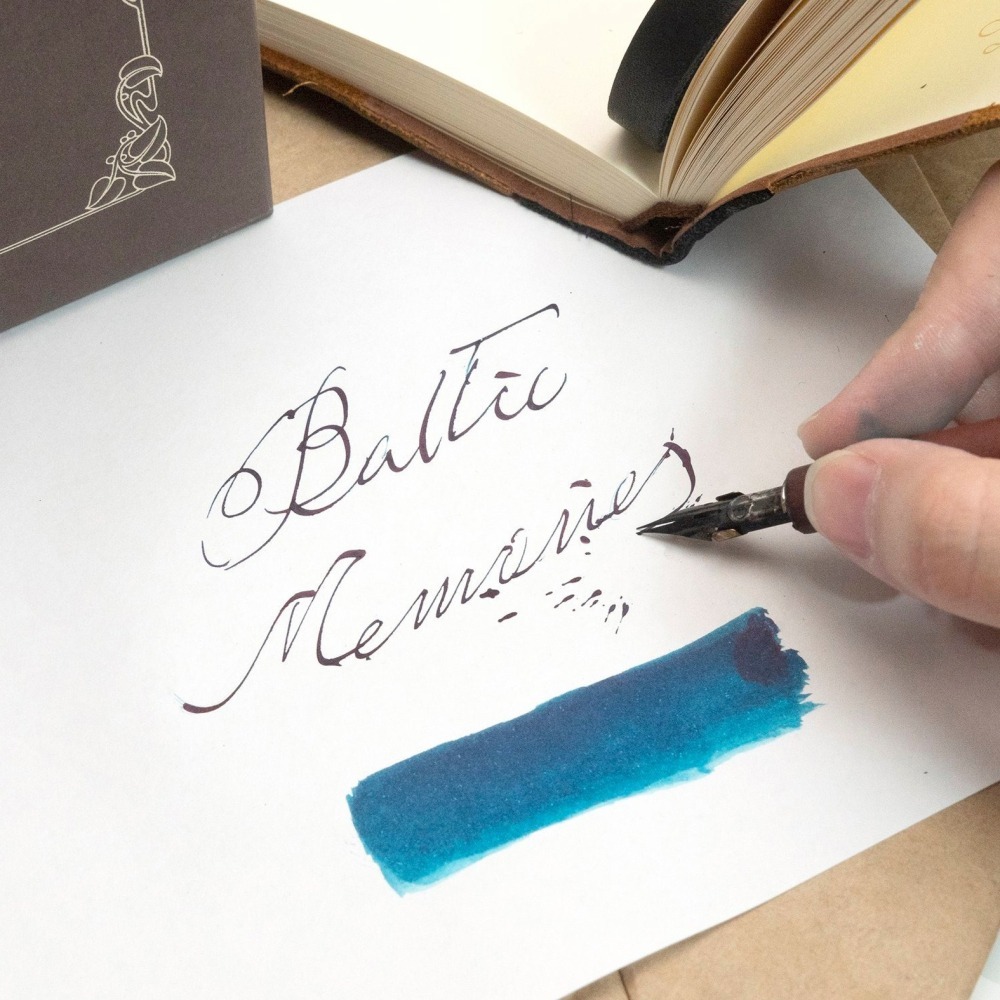 Baltic
Memories